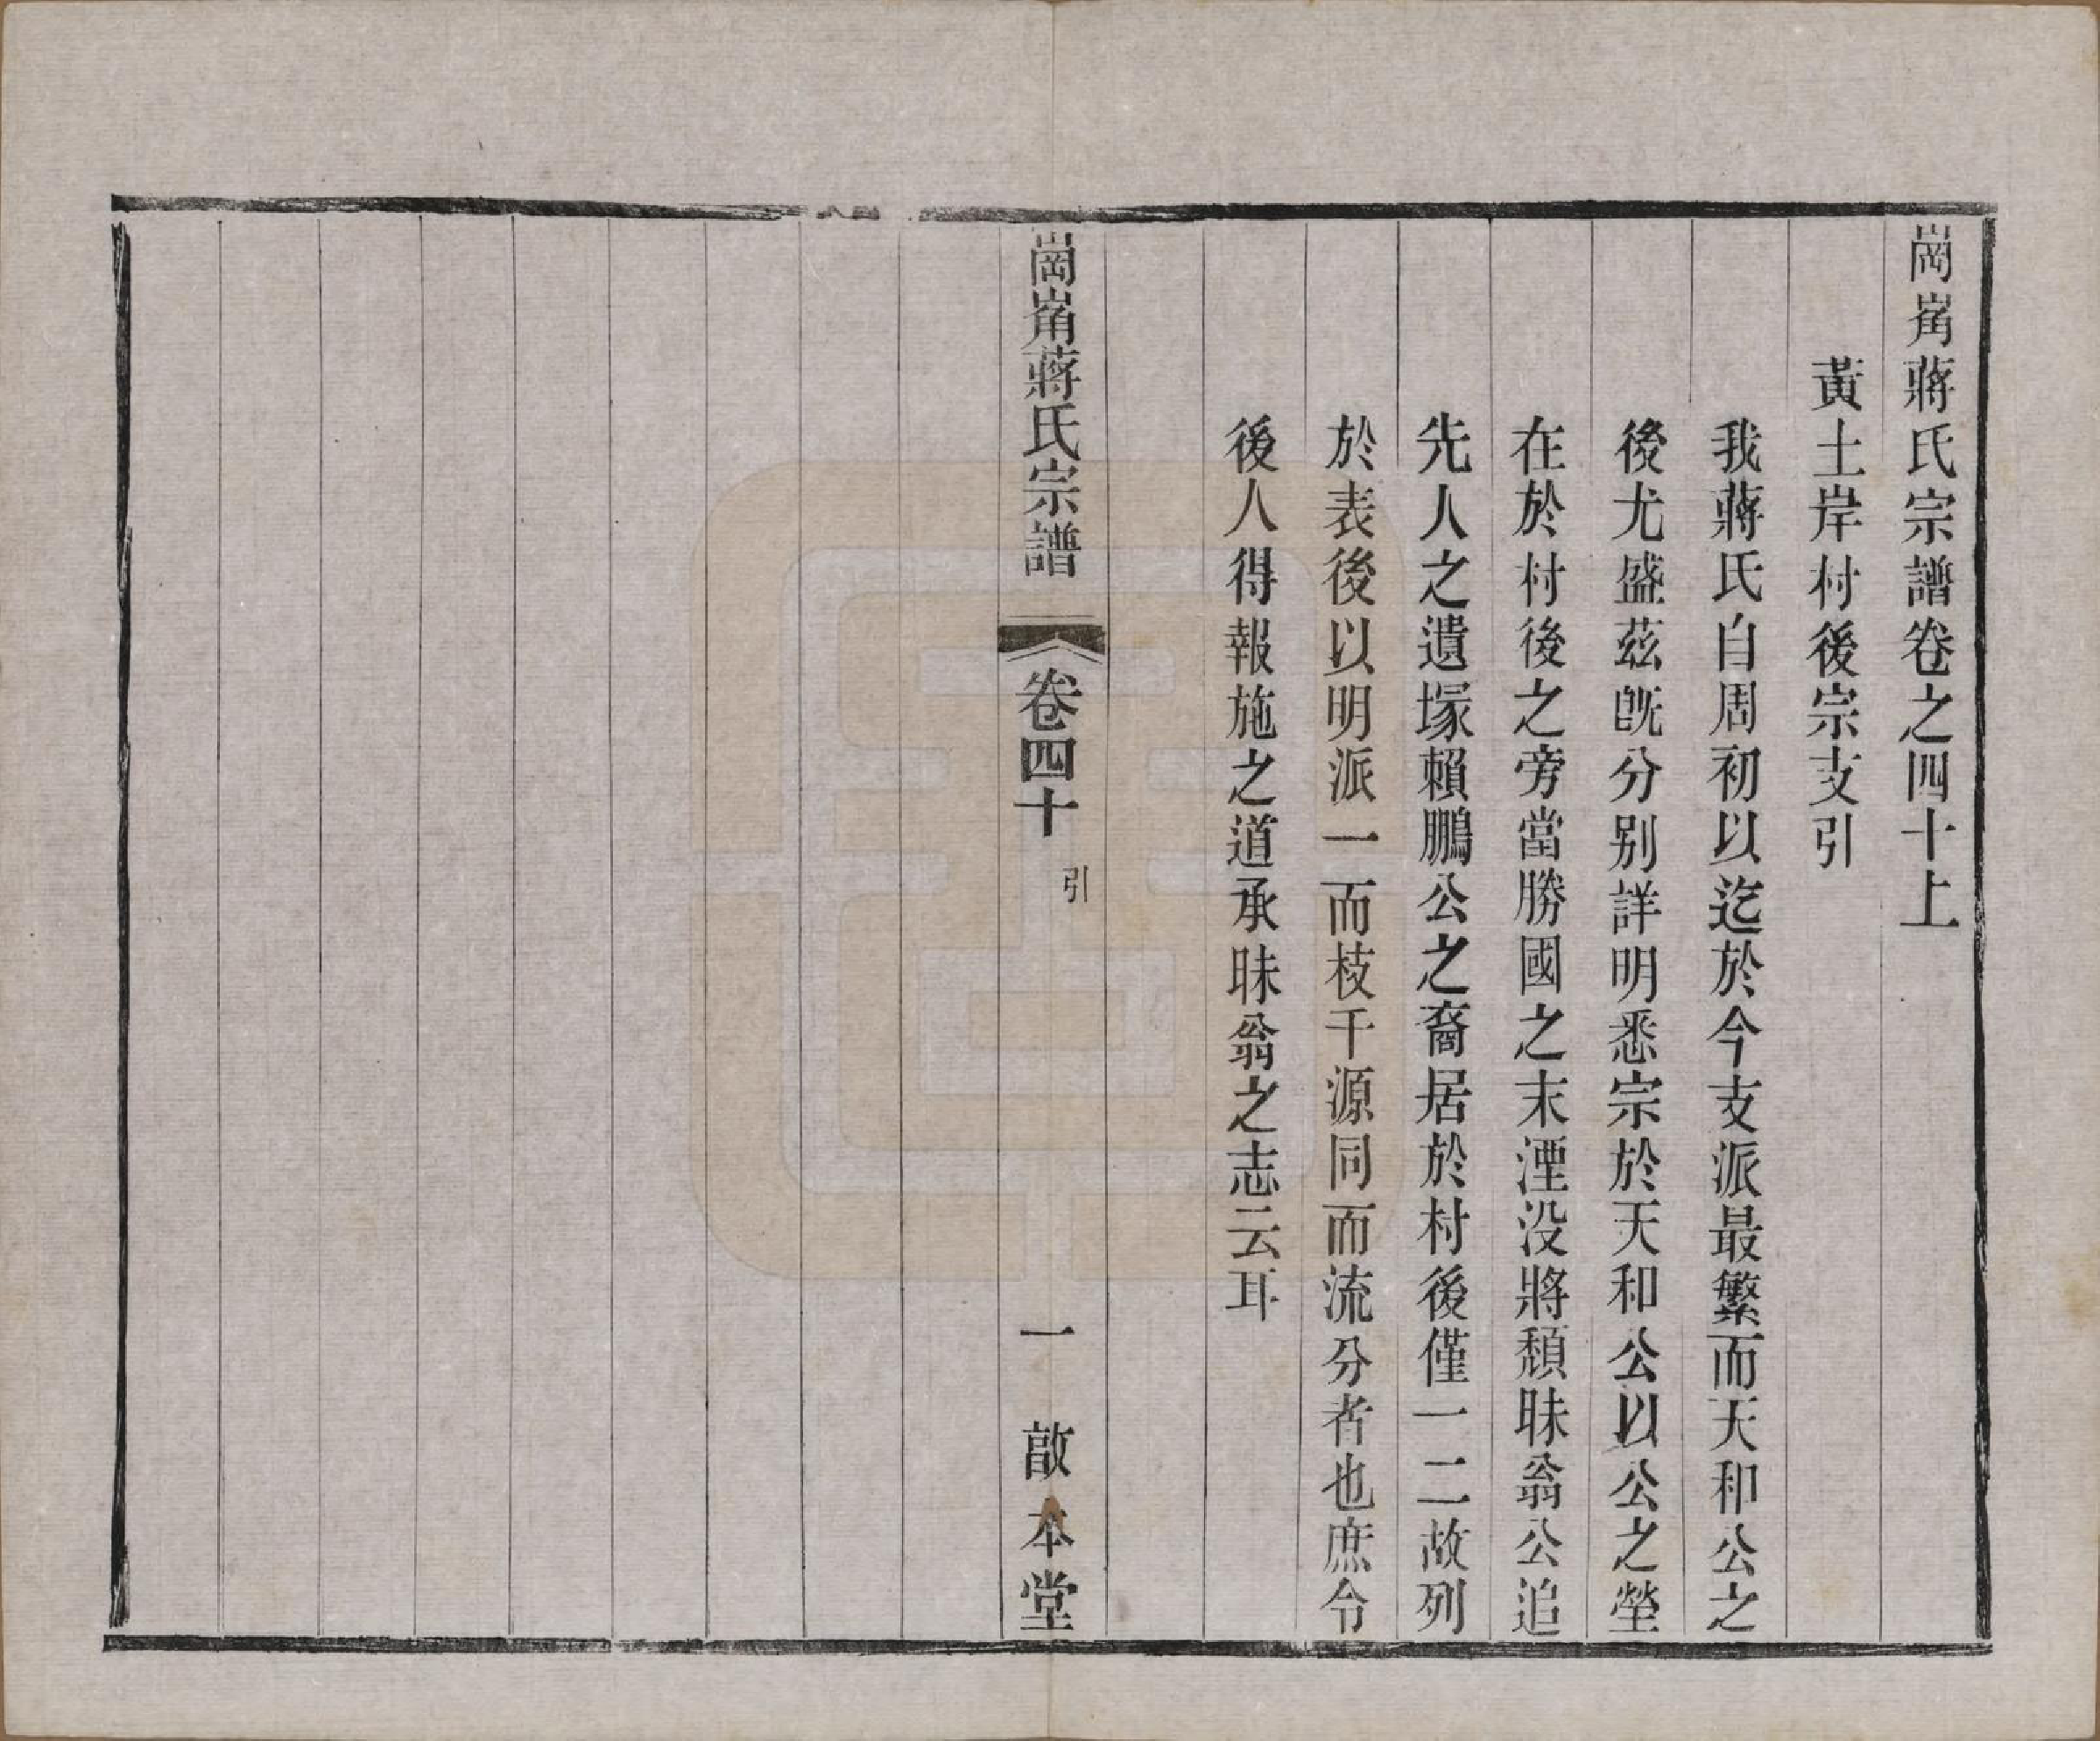 崗㟁蔣氏宗譜卷之四十上
黃土岸村後宗支引
我蔣氏自周初以迄於今支派最繁而天和公之
後尤盛茲旣分別詳明悉宗於天和公以公之塋
在於村後之旁當勝國之末湮没將頽昧翁公追
先人之遺塚賴鵬公之裔居於村後僅一二故列
於表後以明派一而枝千源同而流分者也庶令
後人得報施之道承昧翁之志云耳
崗㟁蔣氏宗譜
卷四十
引
一
啟本堂